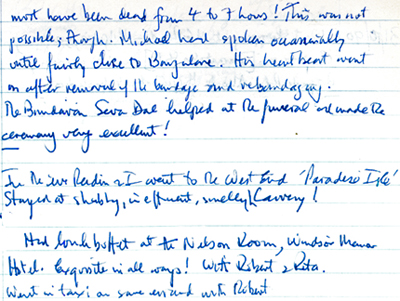 must have been dead from 4 to 7 hours! This was not
possible, though. Michael had spoken occasionally
until fairly close to Bangalore. His heart beat went
on after removal of the bandage and rebandaging.
The Brindavan Seva Dal helped at the funeral and made the
ceremony very excellent!
In the I went to the West End 'Paradise Isle'
Stayed at shabby, inefficient, smelly Cauvery!
Had lunch buffet at the Nelson Room, Windsor Manor
Hotel. Exquisite in all ways! With Robert & Rita.
Went in taxi on same errand with Robert